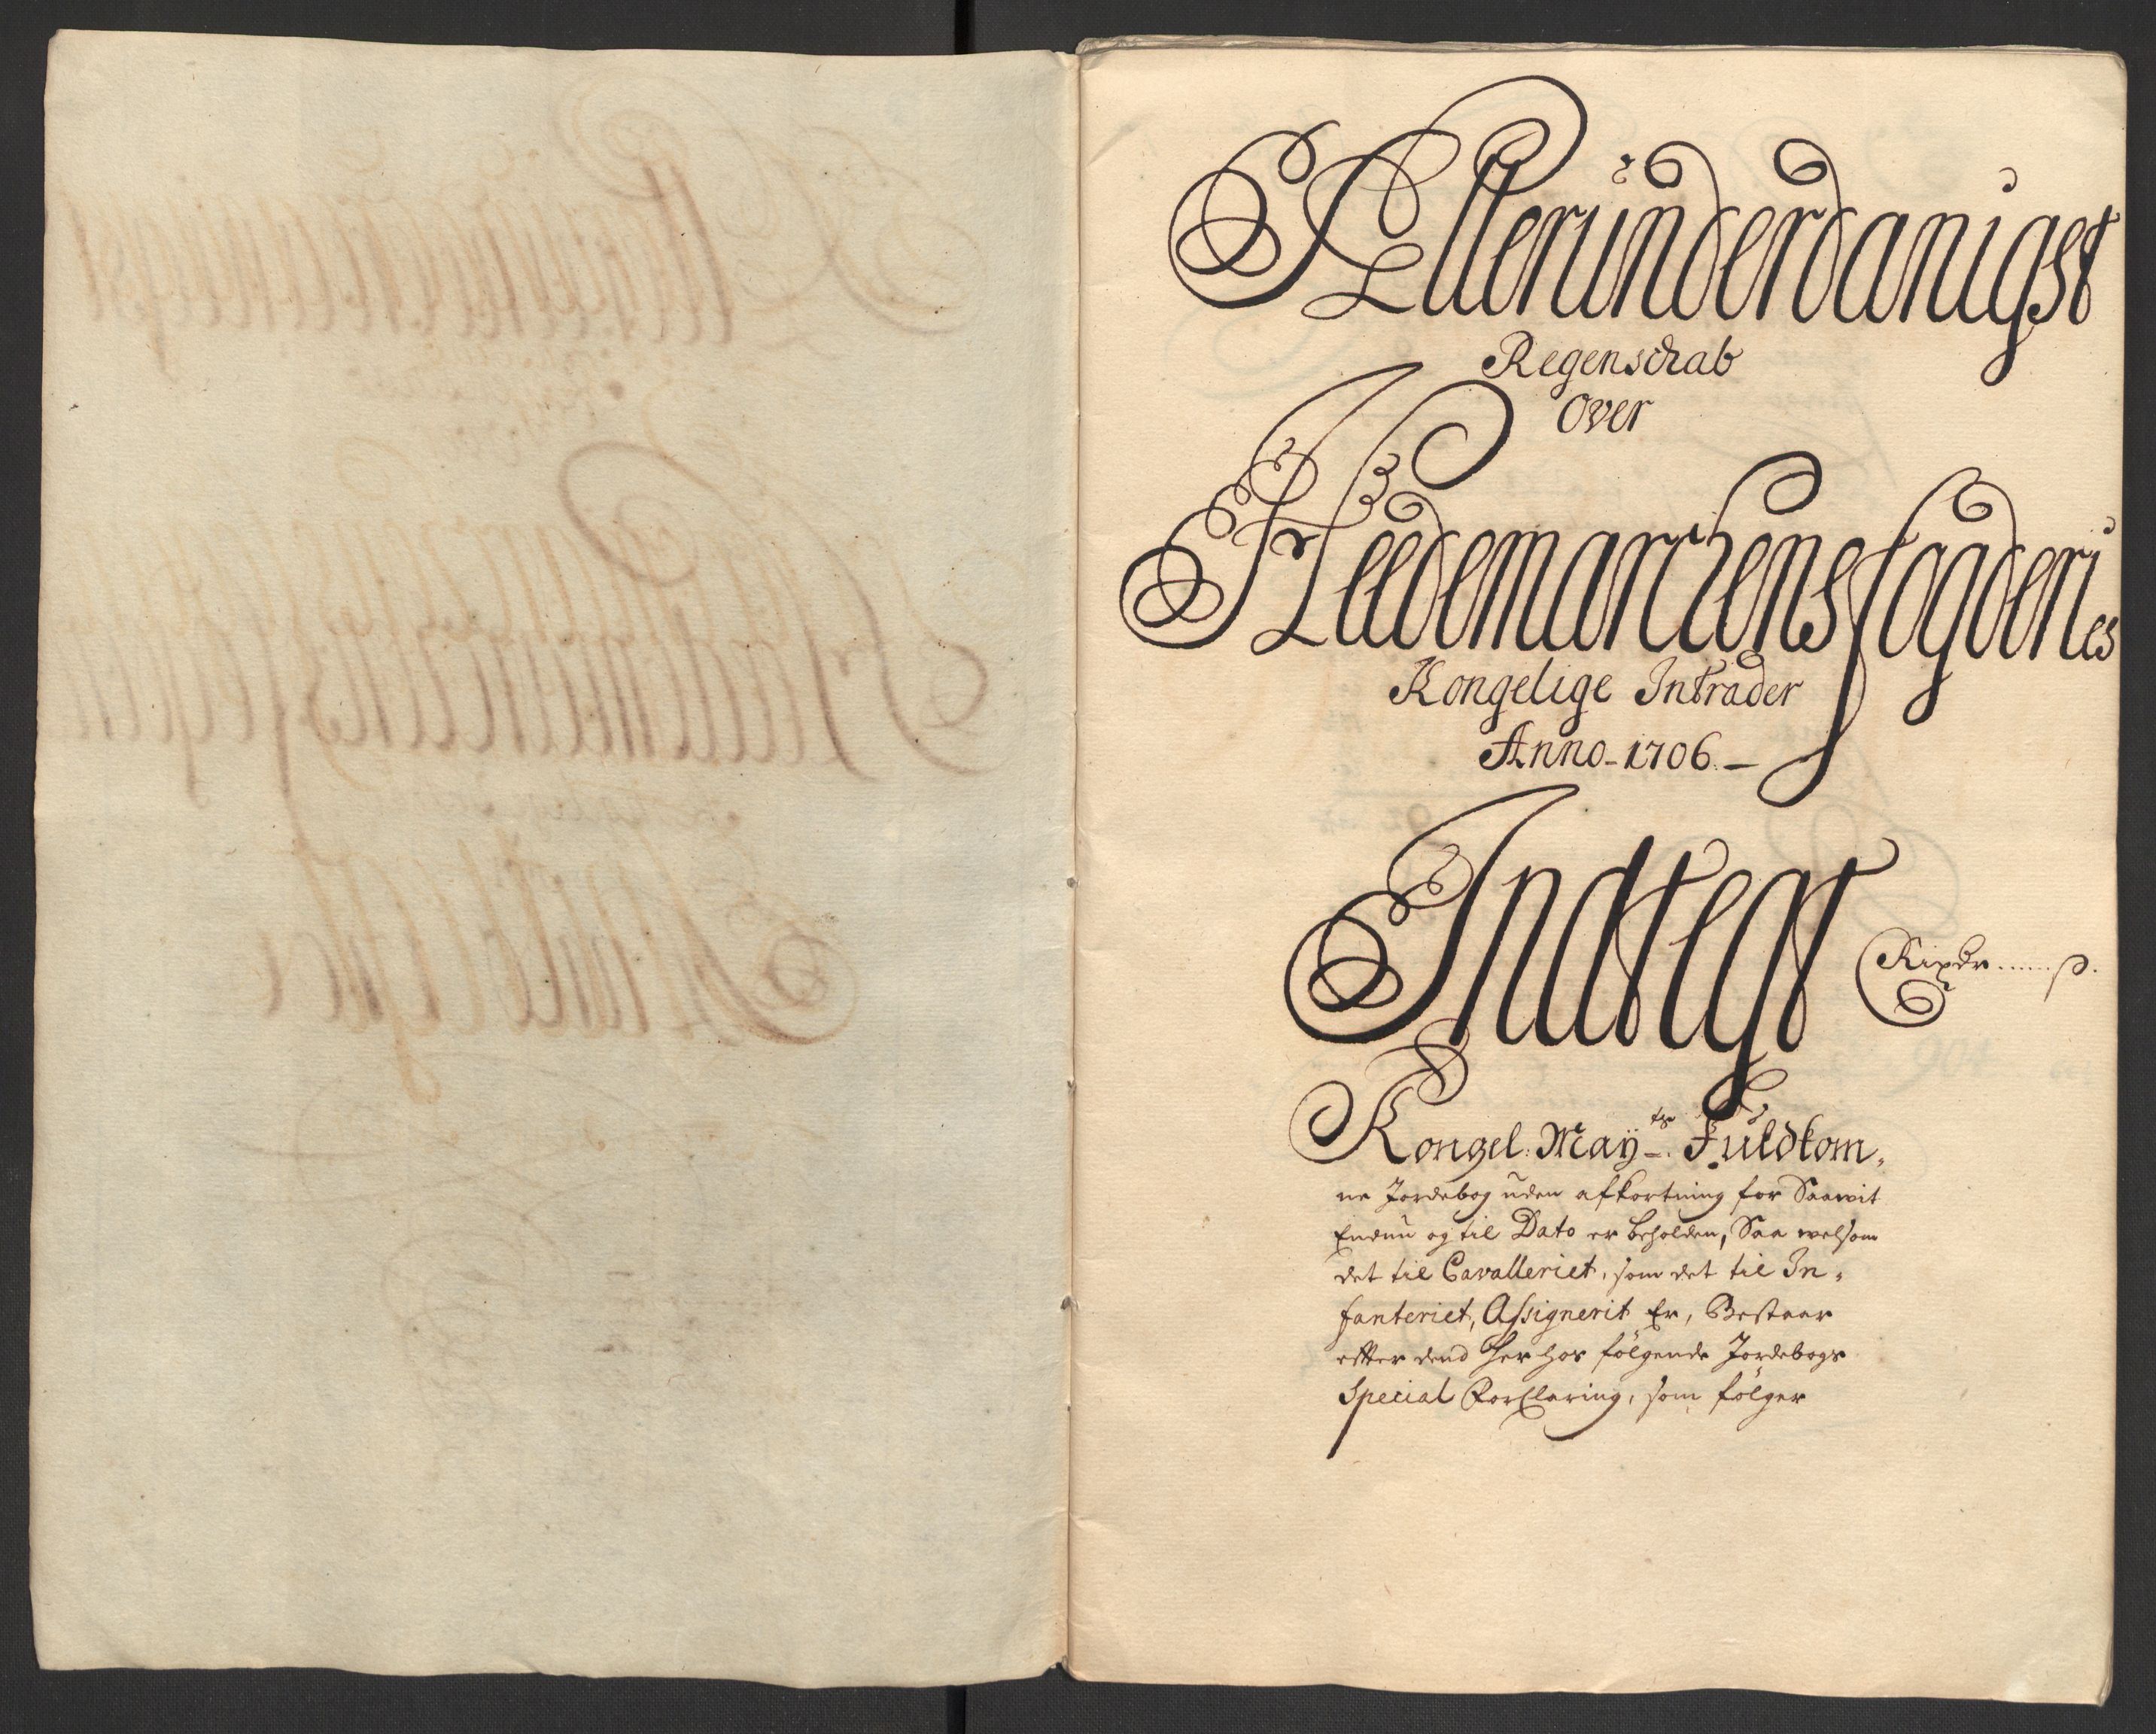 Alleründerdanigst
Regenschab
Over
Heedemarchens fogderies
Kongelige Intrader
Anno 1706. –
Indtegt
Rixdr ..... ß.
Kongel: Maÿ_ts. Fuldkom„
ne Jordebog uden afkortning for Saawit
Endnu og til Dato er beholden, Saa welsom
det til Cavalleriet, som det til In„
fanteriet, Assignerit Er, Bestaar
efter dend her hos følgende Jordebogs
Special Forklaring, som følger